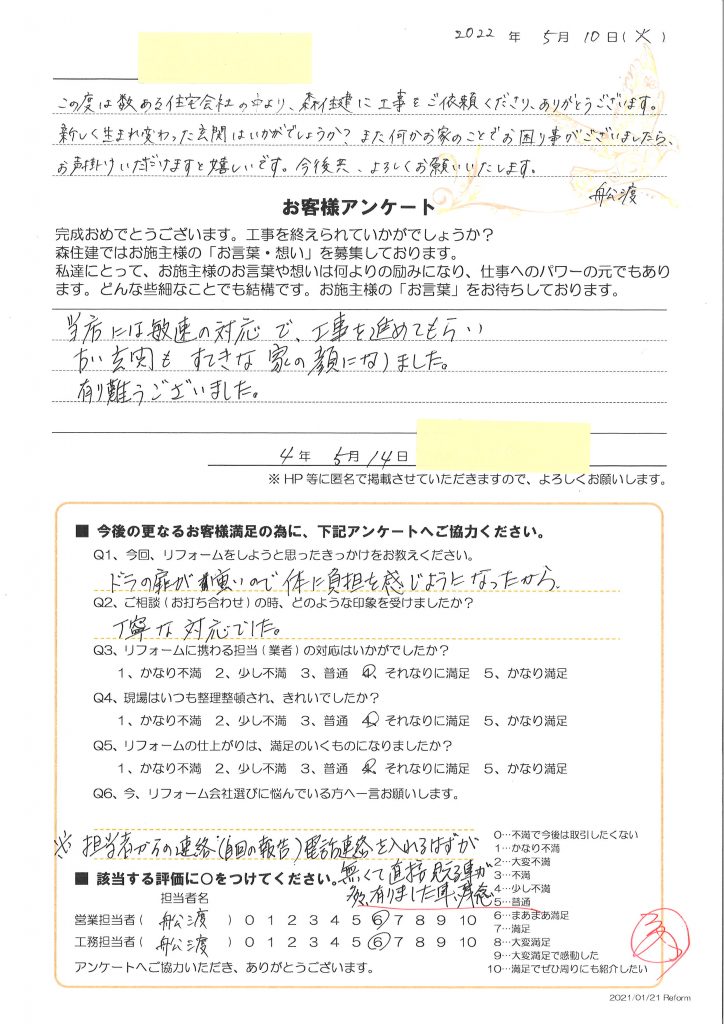 2022 年 5月 10日(火)
この度は数ある住宅会社の中より、森住建に工事をご依頼くださり、ありがとうございます。
新しく生まれ変わった玄関はいかがでしょうか？また何かお家のことでお困り事がございましたら、
お声掛けいただけますと嬉しいです。今後共、よろしくお願いいたします。
舩渡
お客様アンケート
完成おめでとうございます。工事を終えられていかがでしょうか？
森住建ではお施主様の「お言葉・想い」を募集しております。
私達にとって、お施主様のお言葉や想いは何よりの励みになり、仕事へのパワーの元でもあり
ます。どんな些細なことでも結構です。お施主様の「お言葉」をお待ちしております。
当店には敏速の対応で、工事を進めてもらい
古い玄関もすてきな家の顔になりました。
有り難うございました。
4年 5月14日
※HP等に匿名で掲載させていただきますので、よろしくお願いします。
■ 今後の更なるお客様満足の為に、下記アンケートへご協力ください。
Q1、今回、リフォームをしようと思ったきっかけをお教えください。
ドアの扉が重いので体に負担を感じようになったから
Q2、ご相談(お打ち合わせ)の時、どのような印象を受けましたか？
丁寧な対応でした。
Q3、リフォームに携わる担当(業者)の対応はいかがでしたか？
1、かなり不満 2、少し不満 3、普通 4、それなりに満足 5、かなり満足
Q4、現場はいつも整理整頓され、きれいでしたか？
1、かなり不満 2、少し不満 3、普通 4、それなりに満足 5、かなり満足
Q5、リフォームの仕上がりは、満足のいくものになりましたか？
1、かなり不満 2、少し不満 3、普通 4、それなりに満足 5、かなり満足
Q6、今、リフォーム会社選びに悩んでいる方へ一言お願いします。
※担当者からの連絡(の報告)電話連絡を入れるはずが
無くて直接見える事が
多々有りました事、残念
■ 該当する評価に○をつけてください。
担当者名
営業担当者( 舩渡 ) 0 1 2 3 4 5 6 7 8 9 10
工務担当者( 舩渡 ) 0 1 2 3 4 5 6 7 8 9 10
アンケートへご協力いただき、ありがとうございます。
0…不満で今後は取引したくない
1…かなり不満
2…大変不満
3…不満
4…少し不満
5…普通
6…まあまあ満足
7…満足
8…大変満足
9…大変満足で感動した
10…満足でぜひ周りにも紹介したい
2021/01/21 Reform